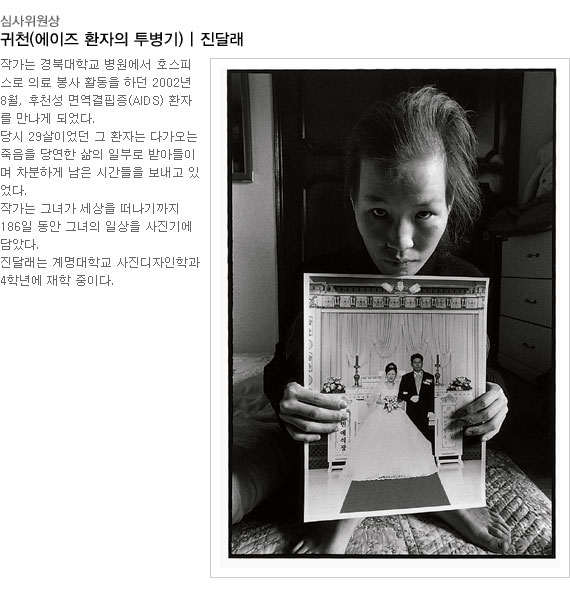 심사위원상
귀천(에이즈 환자의 투병기) | 진달래
작가는 경북대학교 병원에서 호스피
스로 의료 봉사 활동을 하던 2002년
8월, 후천성 면역결핍증(AIDS) 환자
를 만나게 되었다.
당시 29살이었던 그 환자는 다가오는
죽음을 당연한 삶의 일부로 받아들이
며 차분하게 남은 시간들을 보내고 있
었다.
작가는 그녀가 세상을 떠나기까지
186일 동안 그녀의 일상을 사진기에
담았다.
진달래는 계명대학교 사진디자인학과
4학년에 재학 중이다.
예식장